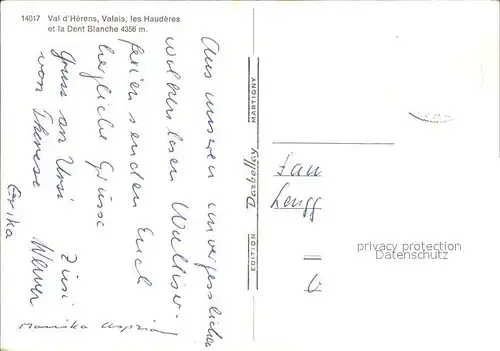 14017 Val d'Hérens, Valais, les Haudères
et la Dent Blanche 4356 m.
Aus unseren unvergesslichen
wolkenlosen Walliser-
ferien senden Euch
herzliche Grüsse
Gruss an Ursi
von Therese Werner
Erika
Monika
EDITION Darbellay MARTIGNY
Fam
privacy protection
Datenschutz